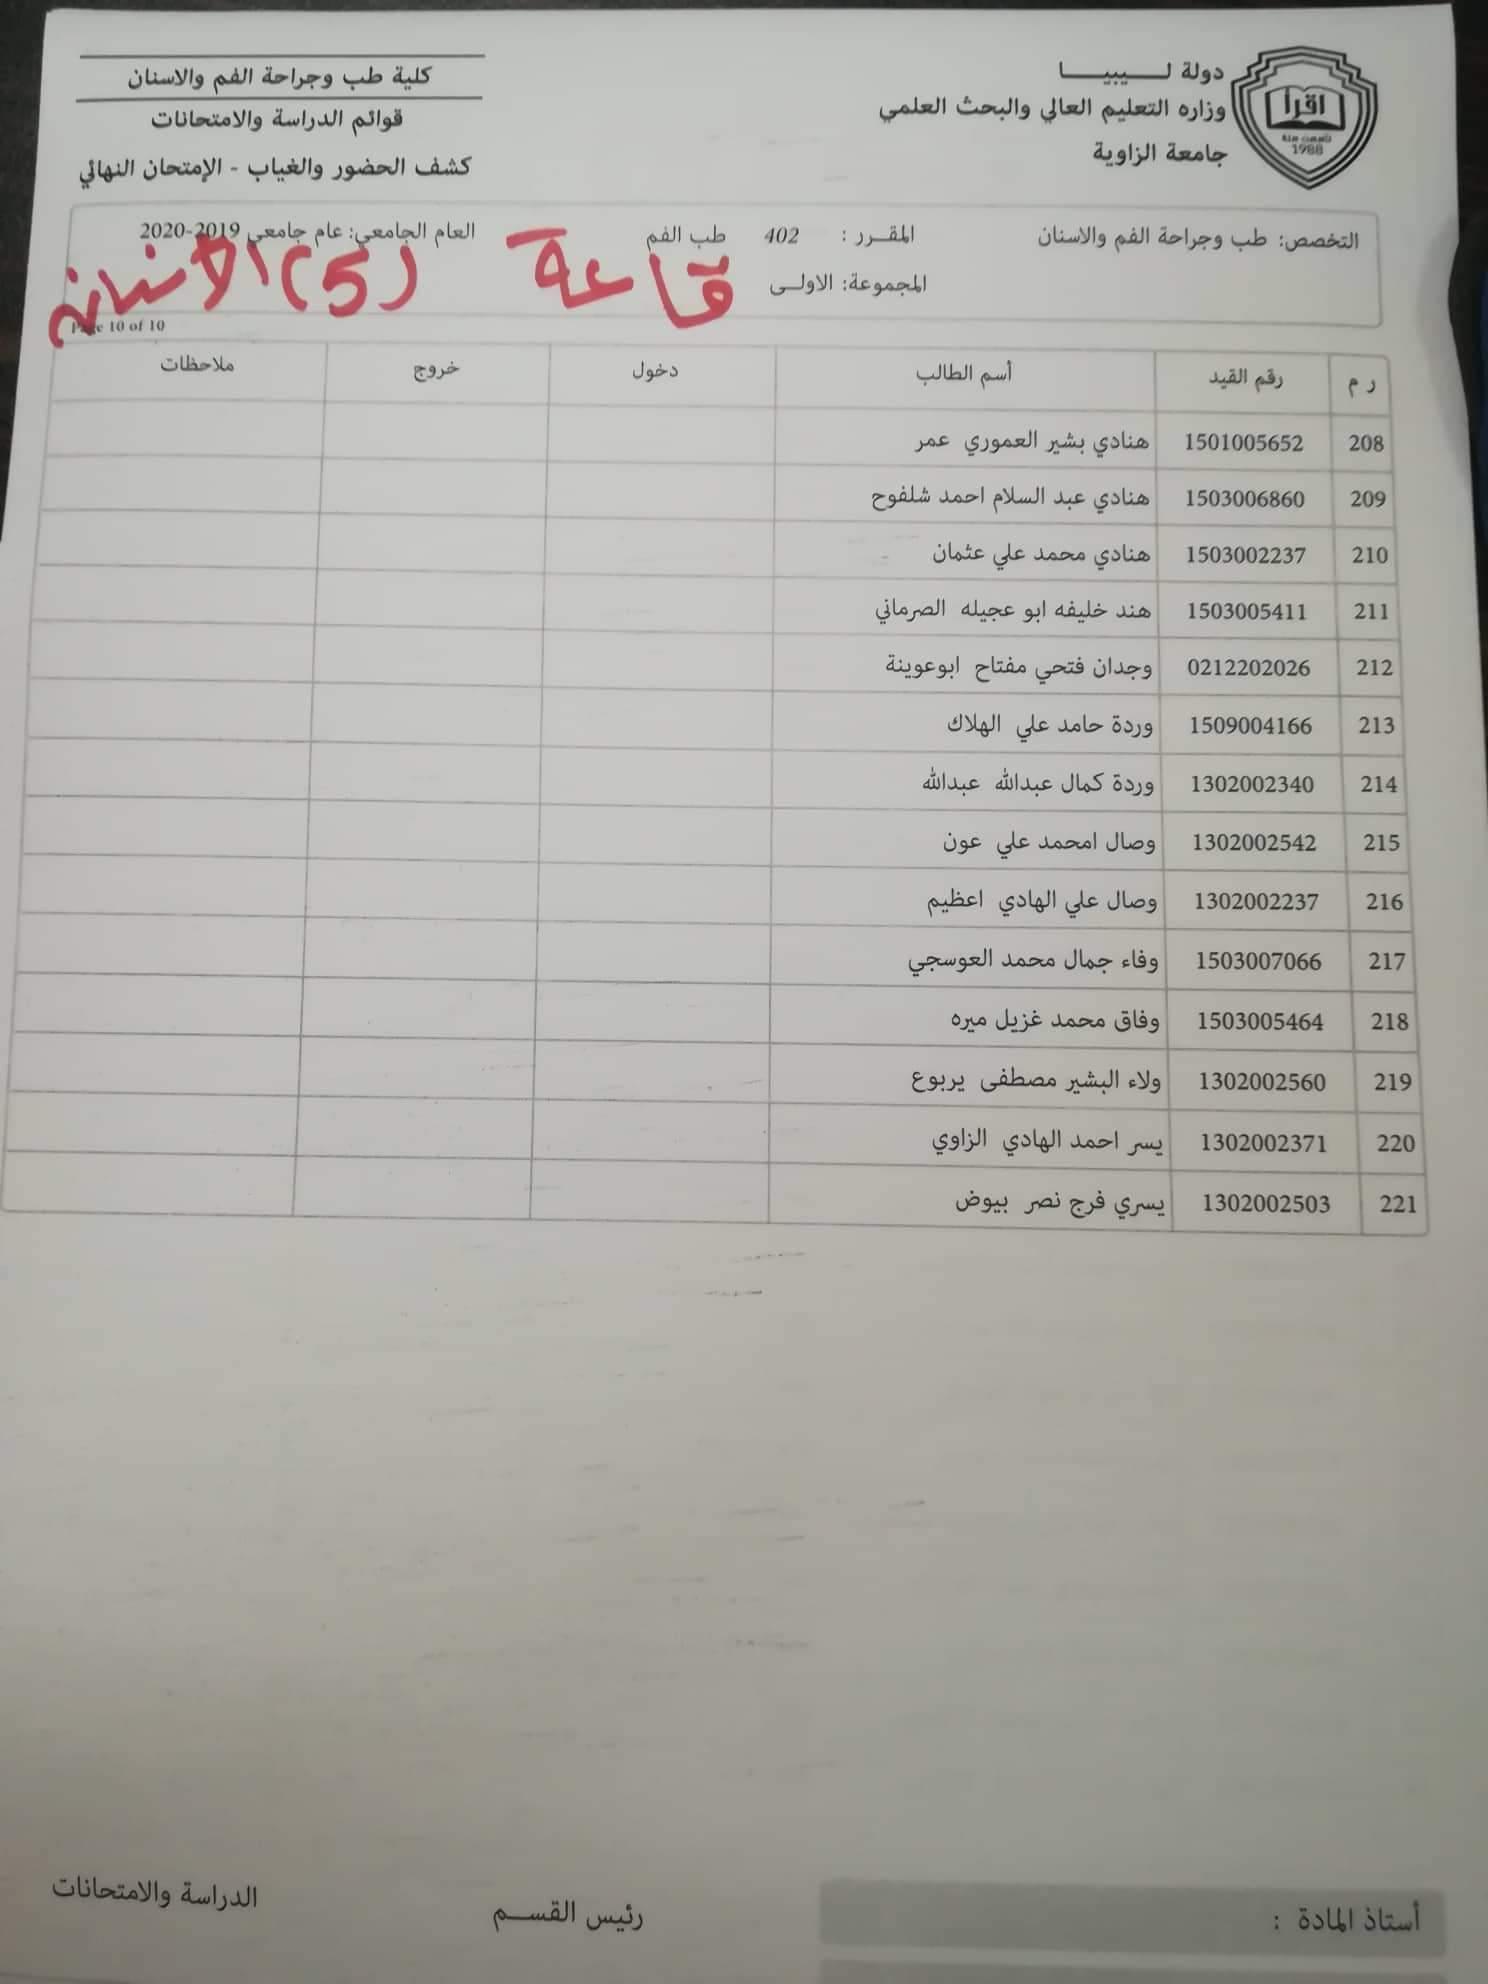 دولة لـــــيبيـــــــا
وزاره التعليم العالي والبحث العلمي
جامعة الزاوية
اقرأ
تأسست سنة
1988
كلية طب وجراحة الفم والاسنان
قوائم الدراسة والامتحانات
كشف الحضور والغياب - الإمتحان النهائي
التخصص: طب وجراحة الفم والاسنان المقـــرر : 402 طب الفم العام الجامعي: عام جامعي 2019-2020
المجموعة: الاولــى
قاعة (5) الاسنان
Page 10 of 10
ر م رقم القيد أسم الطالب دخول خروج ملاحظات
208 1501005652 هنادي بشير العموري عمر
209 1503006860 هنادي عبد السلام احمد شلفوح
210 1503002237 هنادي محمد علي عثمان
211 1503005411 هند خليفه ابو عجيله الصرماني
212 0212202026 وجدان فتحي مفتاح ابوعوينة
213 1509004166 وردة حامد علي الهلاك
214 1302002340 وردة كمال عبدالله عبدالله
215 1302002542 وصال امحمد علي عون
216 1302002237 وصال علي الهادي اعظيم
217 1503007066 وفاء جمال محمد العوسجي
218 1503005464 وفاق محمد غزيل ميره
219 1302002560 ولاء البشير مصطفى يربوع
220 1302002371 يسر احمد الهادي الزاوي
221 1302002503 يسري فرج نصر بيوض
أستاذ المادة : رئيس القســـم الدراسة والامتحانات